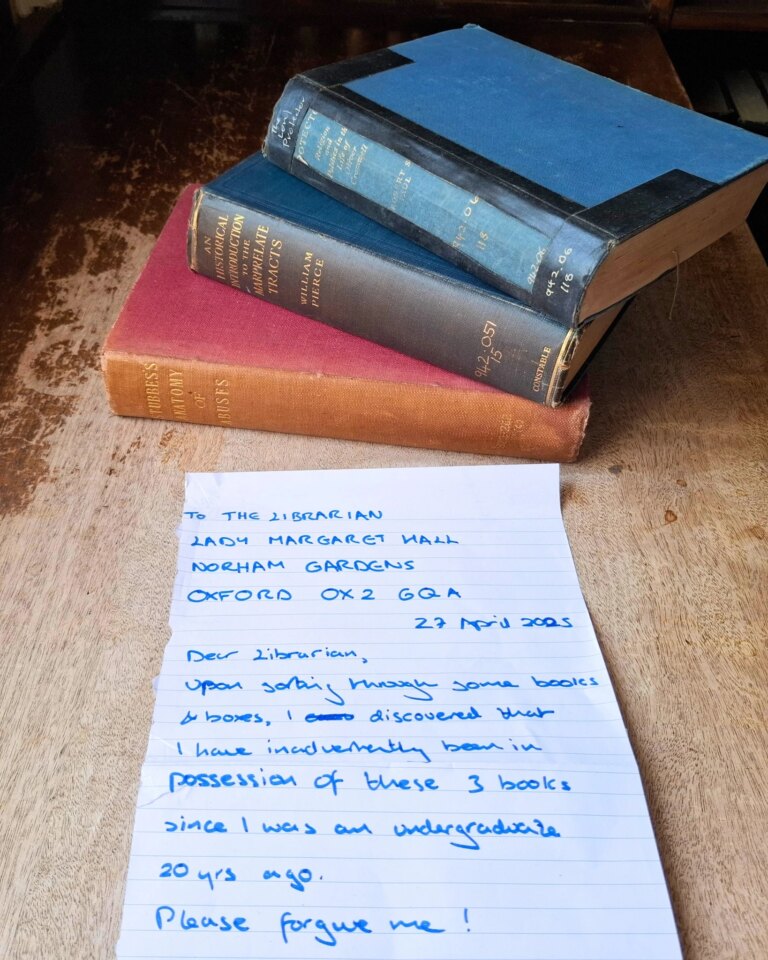 The
Lord
Protector
Religion
and
Politics in the
Life of
Oliver
Cromwell
942.06
118
942.06
942.06
118
AN
HISTORICAL
INTRODUCTION
TO THE
MARPRELATE
TRACTS
WILLIAM
PIERCE
942.051
15
CONSTABLE
ANATOMY
OF
TO THE LIBRARIAN
LADY MARGARET HALL
NORHAM GARDENS
OXFORD OX2 6QA
27 April 2025
Dear Librarian,
Upon sorting through some books
& boxes, I discovered that
I have inadvertently been in
possession of these 3 books
since I was an undergraduate
20 yrs ago.
Please forgive me !